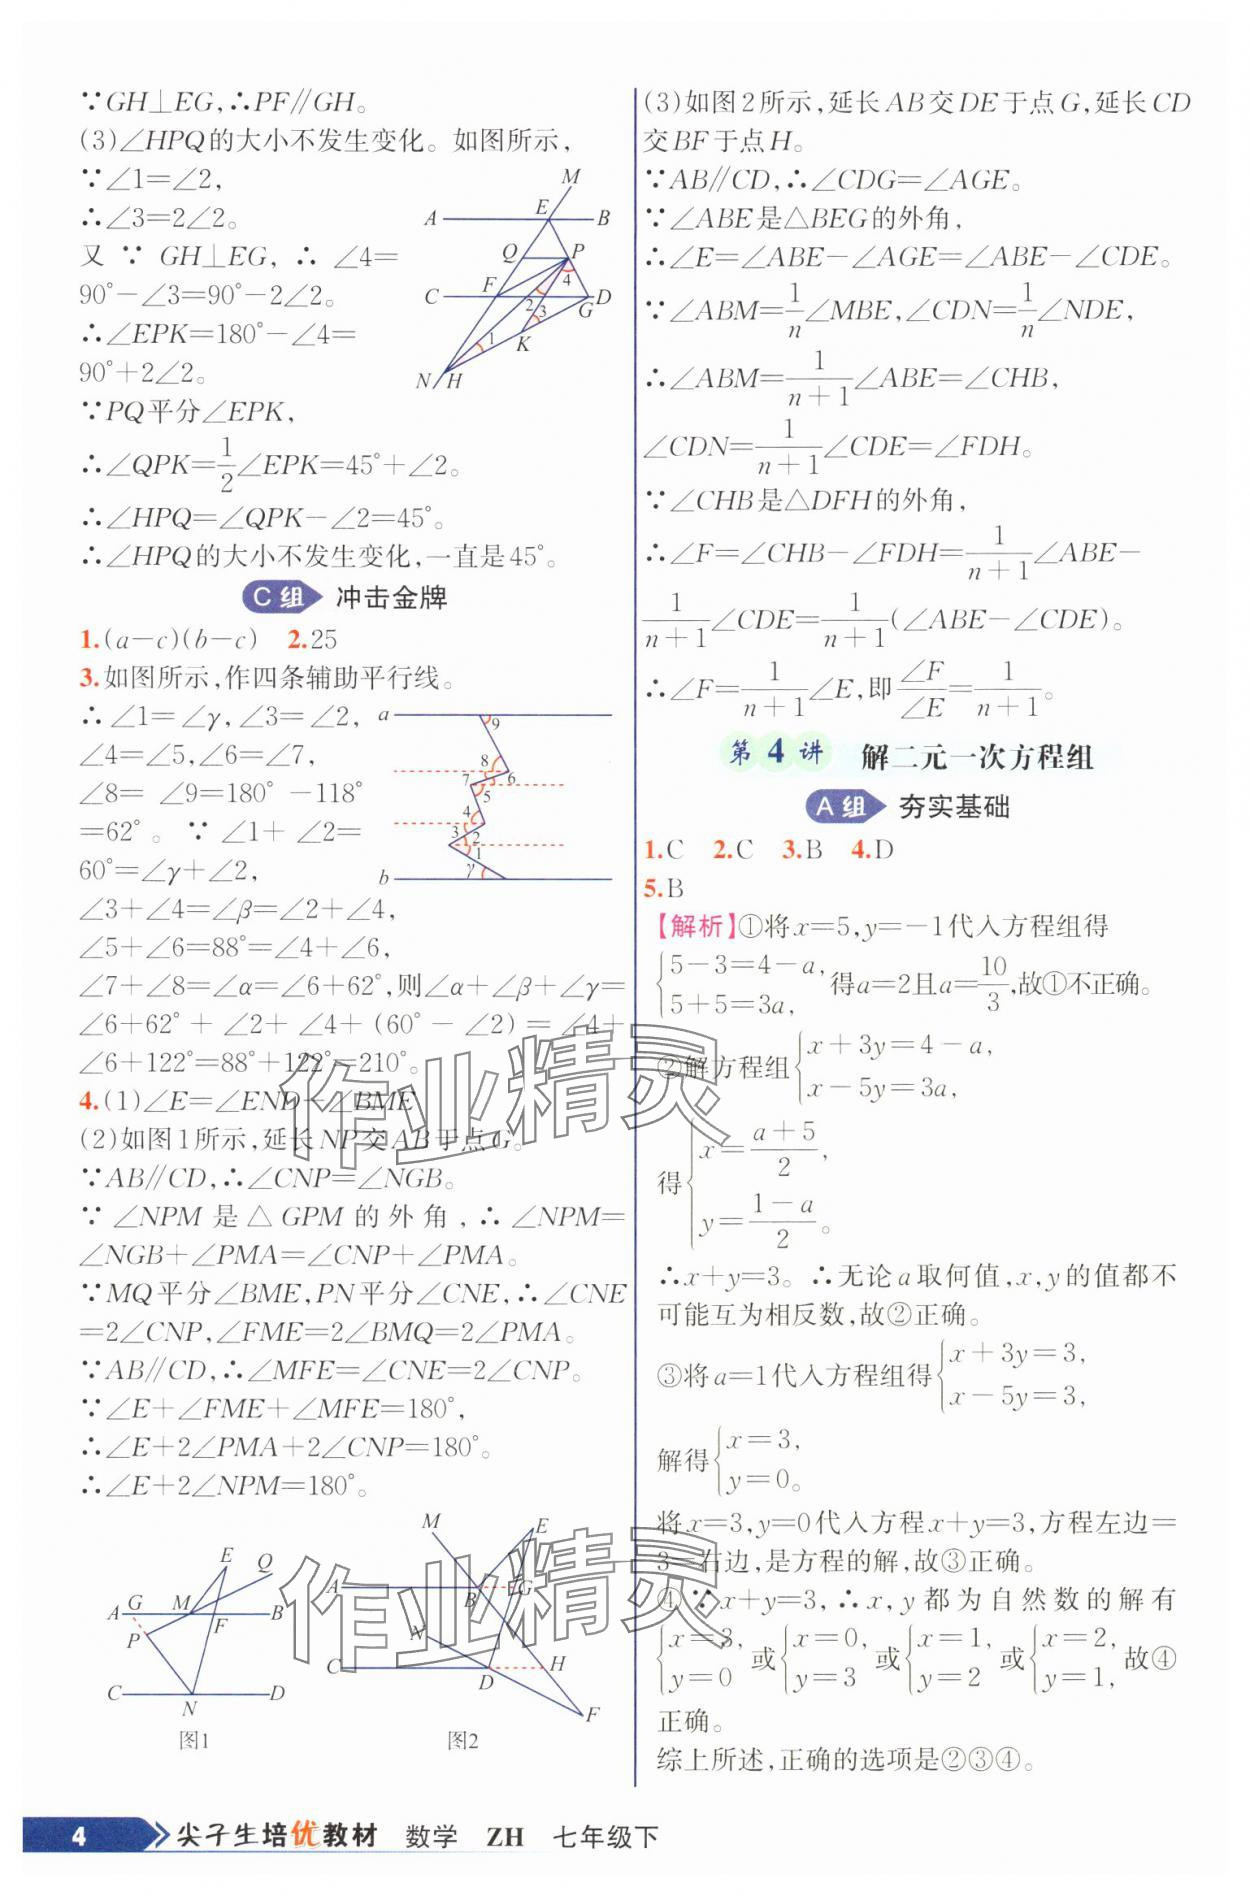 ∵GH⊥EG,∴PF∥GH。
(3)∠HPQ的大小不发生变化。如图所示,
∵∠1=∠2,
∴∠3=2∠2。
又 ∵ GH⊥EG, ∴ ∠4=
90°-∠3=90°-2∠2。
∴∠EPK=180°-∠4=
90°+2∠2。
∵PQ平分∠EPK,
∴∠QPK=1/2∠EPK=45°+∠2。
∴∠HPQ=∠QPK-∠2=45°。
∴∠HPQ的大小不发生变化,一直是45°。
M
A E B
Q P
4
C F D
2 3 G
1 K
N H
C组 冲击金牌
1.(a-c)(b-c) 2.25
3.如图所示,作四条辅助平行线。
∴∠1=∠γ,∠3=∠2,
∠4=∠5,∠6=∠7,
∠8= ∠9=180° -118°
=62°。∵ ∠1+ ∠2=
60°=∠γ+∠2,
∠3+∠4=∠β=∠2+∠4,
∠5+∠6=88°=∠4+∠6,
∠7+∠8=∠α=∠6+62°,则∠α+∠β+∠γ=
∠6+62° + ∠2+ ∠4+ (60° - ∠2) = ∠4+
∠6+122°=88°+122°=210°。
a 9
8
7 6
5
4
3 2
1
b γ
4.(1)∠E=∠END-∠BME
(2)如图1所示,延长NP交AB于点G。
∵AB∥CD,∴∠CNP=∠NGB。
∵ ∠NPM 是 △ GPM 的 外 角 , ∴ ∠NPM=
∠NGB+∠PMA=∠CNP+∠PMA。
∵MQ平分∠BME,PN平分∠CNE,∴∠CNE
=2∠CNP,∠FME=2∠BMQ=2∠PMA。
∵AB∥CD,∴∠MFE=∠CNE=2∠CNP。
∵∠E+∠FME+∠MFE=180°,
∴∠E+2∠PMA+2∠CNP=180°。
∴∠E+2∠NPM=180°。
E Q
A G M F B
P
C N D
图1
M E
A B G
N
C D H
F
图2
(3)如图2所示,延长AB交DE于点G,延长CD
交BF于点H。
∵AB∥CD,∴∠CDG=∠AGE。
∵∠ABE是△BEG的外角,
∴∠E=∠ABE-∠AGE=∠ABE-∠CDE。
∵∠ABM=1/n∠MBE,∠CDN=1/n∠NDE,
∴∠ABM=1/(n+1)∠ABE=∠CHB,
∠CDN=1/(n+1)∠CDE=∠FDH。
∵∠CHB是△DFH的外角,
∴∠F=∠CHB-∠FDH=1/(n+1)∠ABE-
1/(n+1)∠CDE=1/(n+1)(∠ABE-∠CDE)。
∴∠F=1/(n+1)∠E,即∠F/∠E=1/(n+1)。
第4讲 解二元一次方程组
A组 夯实基础
1.C 2.C 3.B 4.D
5.B
【解析】①将x=5,y=-1代入方程组得
{5-3=4-a, 5+5=3a, 得a=2且a=10/3,故①不正确。
②解方程组{x+3y=4-a, x-5y=3a,
得{x=(a+5)/2, y=(1-a)/2。
∴x+y=3。∴无论a取何值,x,y的值都不
可能互为相反数,故②正确。
③将a=1代入方程组得{x+3y=3, x-5y=3,
解得{x=3, y=0。
将x=3,y=0代入方程x+y=3,方程左边=
3=右边,是方程的解,故③正确。
④∵x+y=3,∴x,y都为自然数的解有
{x=3, y=0 或{x=0, y=3 或{x=1, y=2 或{x=2, y=1, 故④
正确。
综上所述,正确的选项是②③④。
作业精灵
作业精灵
4 尖子生培优教材 数学 ZH 七年级下